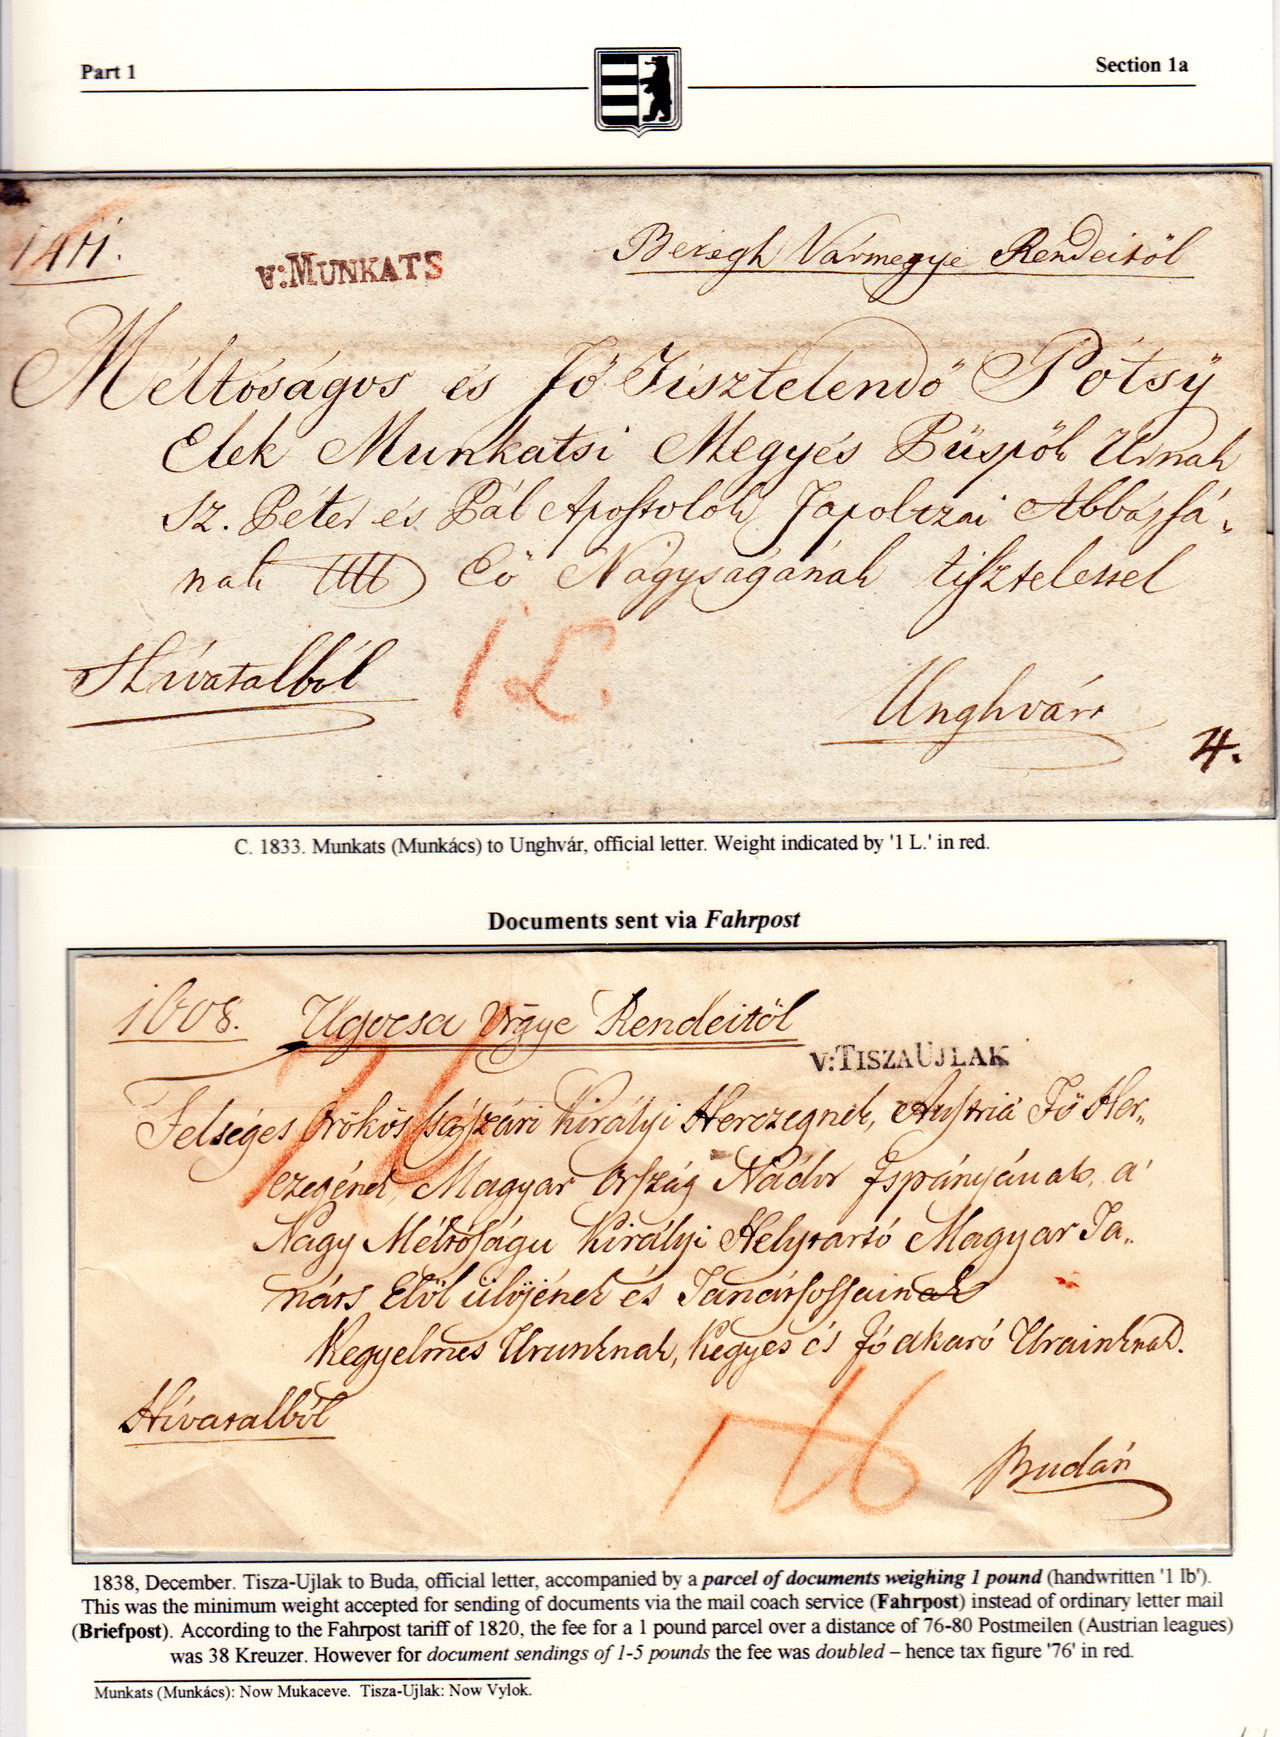 Part 1
Section 1a
1411.
V:MUNKATS
Beregh Vármegye Rendeitöl
Méltóságos és Fö Tisztelendö Pótsÿ
Elek Munkatsi Megyés Püspök Úrnak
Sz. Péter és Pál Apostolok Tapolczai Abbássá-
nak Eö Nagyságának tisztelettel
Hivatalból
1 L.
Unghvárt
4.
C. 1833. Munkats (Munkács) to Unghvár, official letter. Weight indicated by '1 L.' in red.
Documents sent via Fahrpost
1608.
Ugocsa Vrgye Rendeitöl
V:TISZAUJLAK
76
Felséges Örökös Császári Királyi Herczegnek, Austria Fö Her-
czegének, Magyar Ország Nádor Ispányának, a'
Nagy Méltóságu Királyi Helytartó Magyar Ta-
náts Elöl ülöjének és Tanátsossainak
Kegyelmes Urunknak, Kegyes és Jóakaró Urainknak.
Hivatalból
76
Budán
1838, December. Tisza-Ujlak to Buda, official letter, accompanied by a parcel of documents weighing 1 pound (handwritten '1 lb').
This was the minimum weight accepted for sending of documents via the mail coach service (Fahrpost) instead of ordinary letter mail
(Briefpost). According to the Fahrpost tariff of 1820, the fee for a 1 pound parcel over a distance of 76-80 Postmeilen (Austrian leagues)
was 38 Kreuzer. However for document sendings of 1-5 pounds the fee was doubled – hence tax figure '76' in red.
Munkats (Munkács): Now Mukaceve. Tisza-Ujlak: Now Vylok.